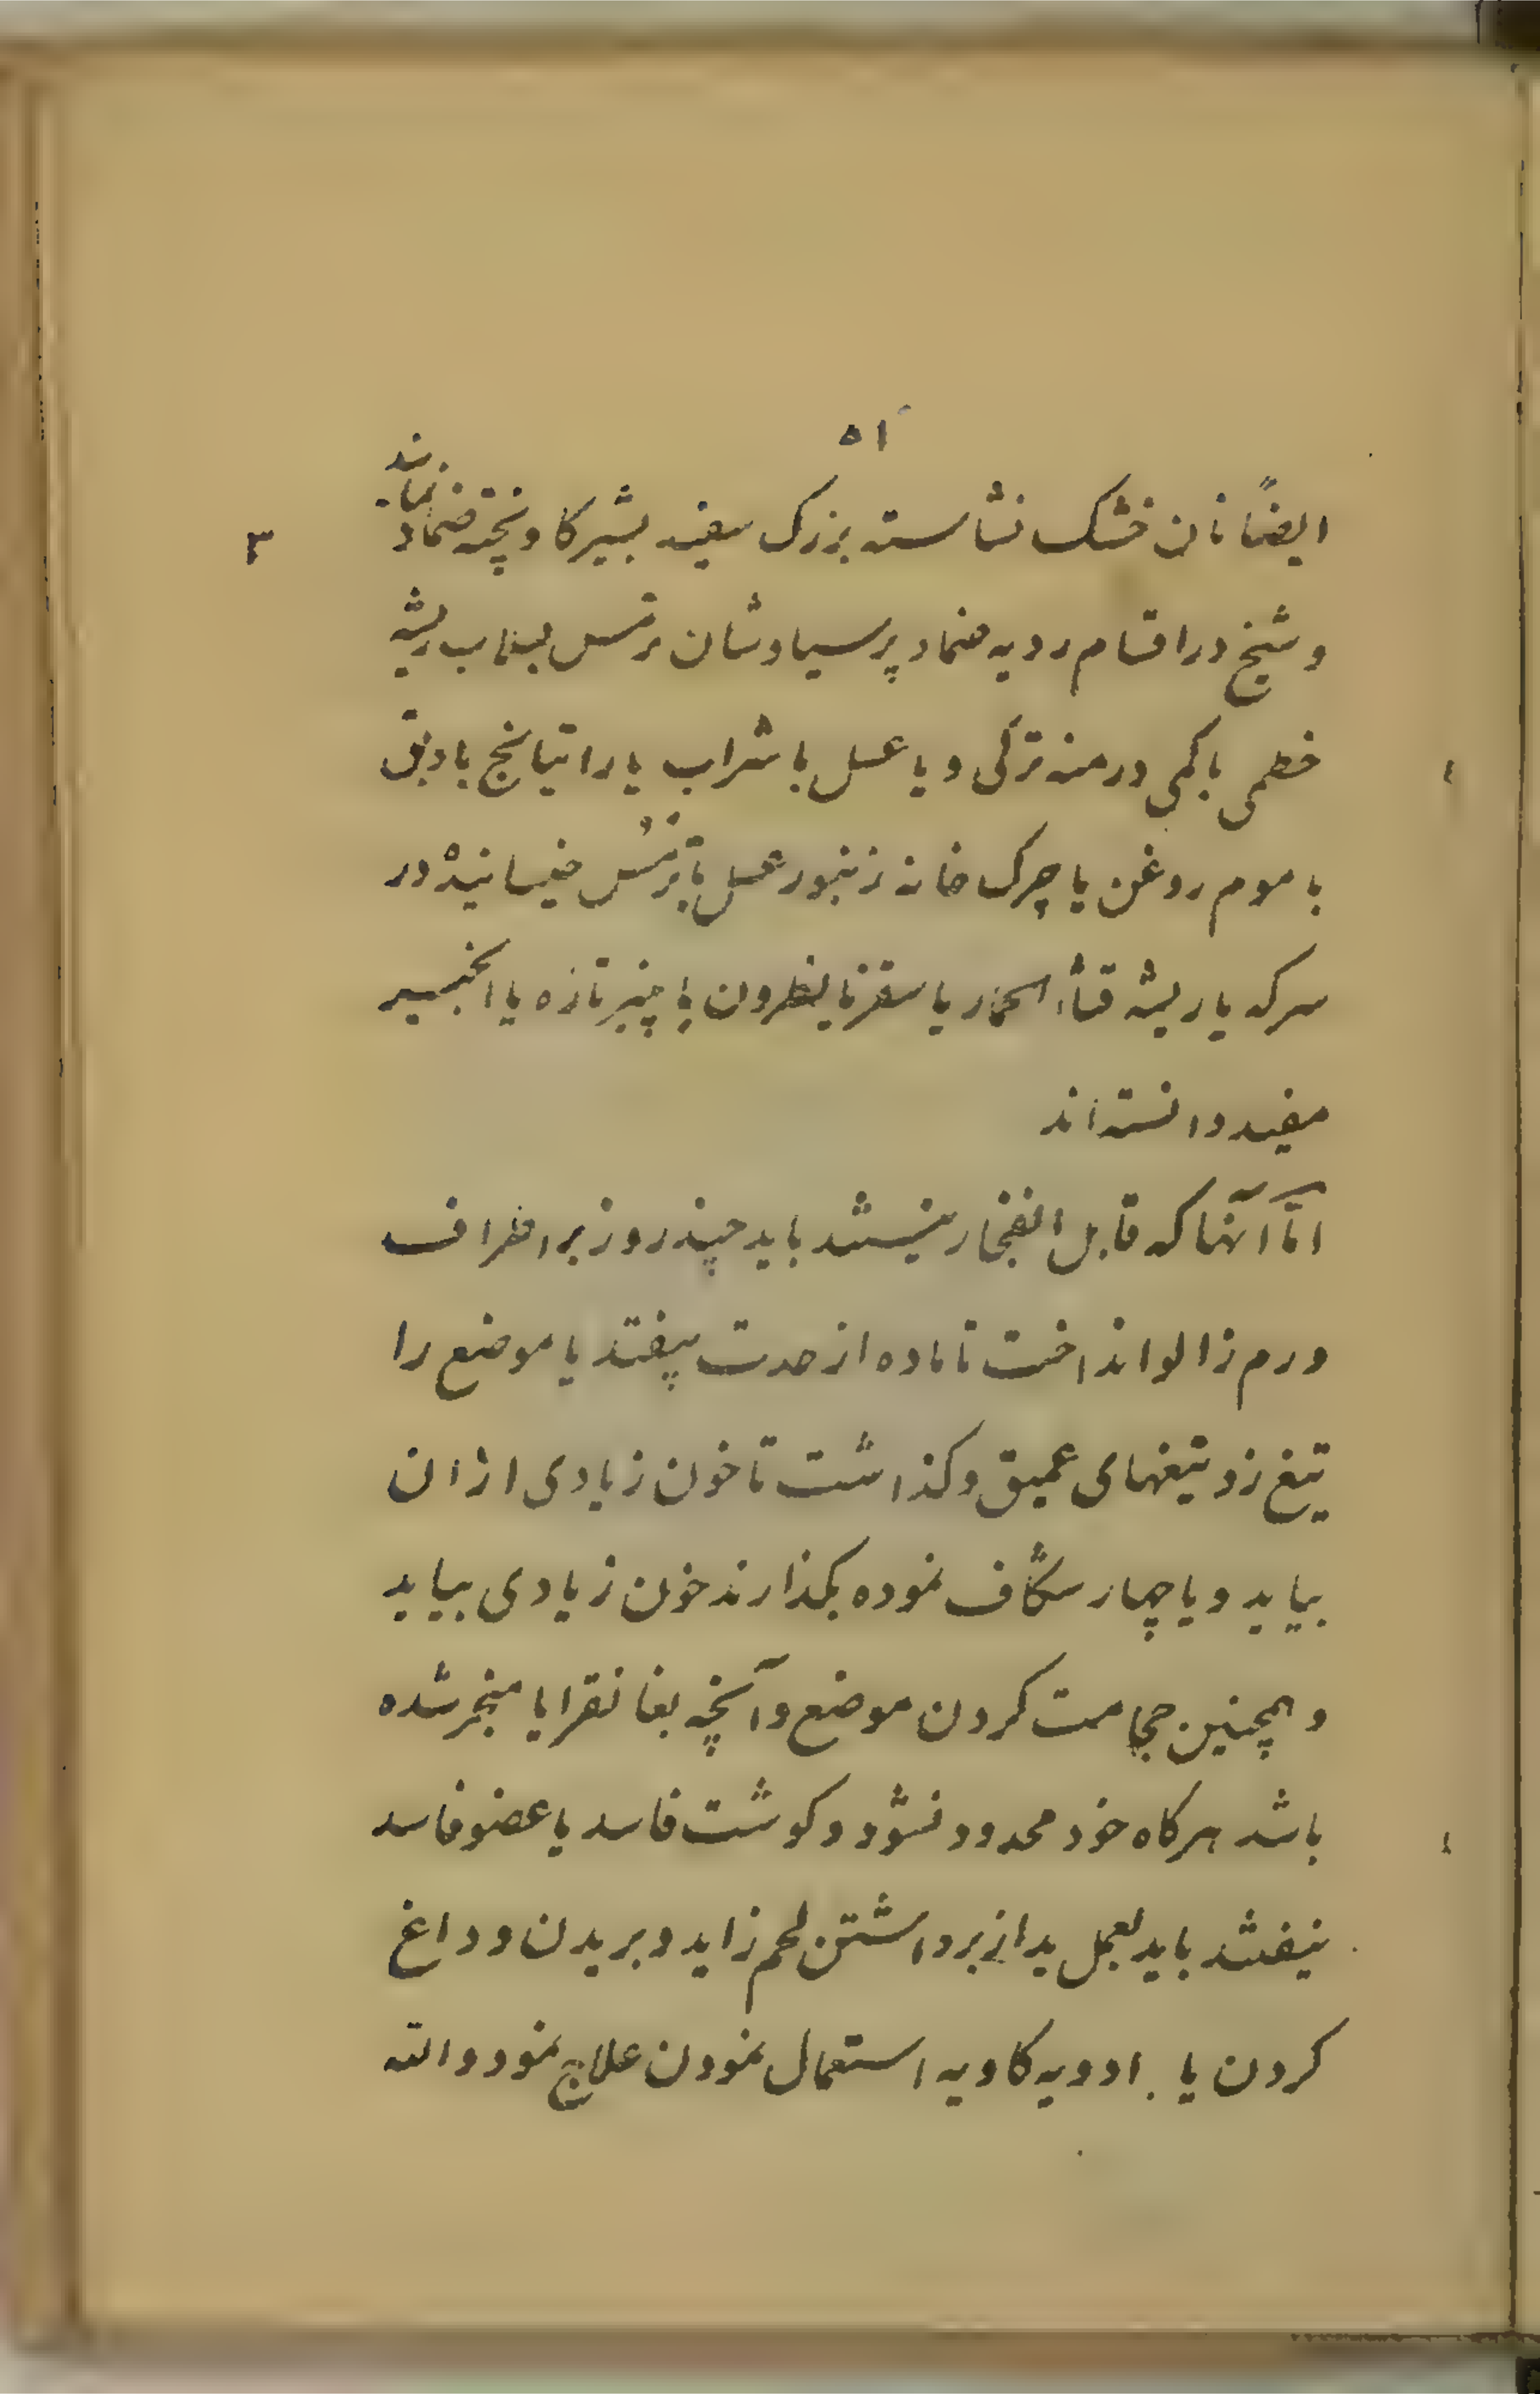 ۵۱
ایضاً نان خشک نشاسته بزرک سفید بشیر کاو پخته ضماد نمایند
۳
و شیخ در اقسام ردیه ضماد پرسیاوشان ترمس لبلاب ریشه
خطمی باکمی درمنه ترکی و یا عسل با شراب یا راتیانج بادبق
با موم روغن یا چرک خانه زنبور عسل یا ترمس خیسانیده در
سرکه یا ریشه قثاء الحمار یا سقز یا نطرون یا پنیر تازه یا انجیر
مفید دانسته‌اند
امّا آنها که قابل انفجار نیستند باید چند روز بر اطراف
ورم زالو انداخت تا ماده از حدت بیفتد یا موضع را
تیغ زد تیغهای عمیق و کذاشت تا خون زیادی از ان
بیاید و یا چهار شکاف نموده بکذارند خون زیادی بیاید
و همچنین حجامت کردن موضع و آنچه بغانقرایا منجر شده
باشد هرکاه خود محدود نشود و کوشت فاسد یا عضو فاسد
نیفتد باید بعمل ید از برداشتن لحم زاید و بریدن و داغ
کردن یا ادویه کاویه استعمال نمودن علاج نمود والله